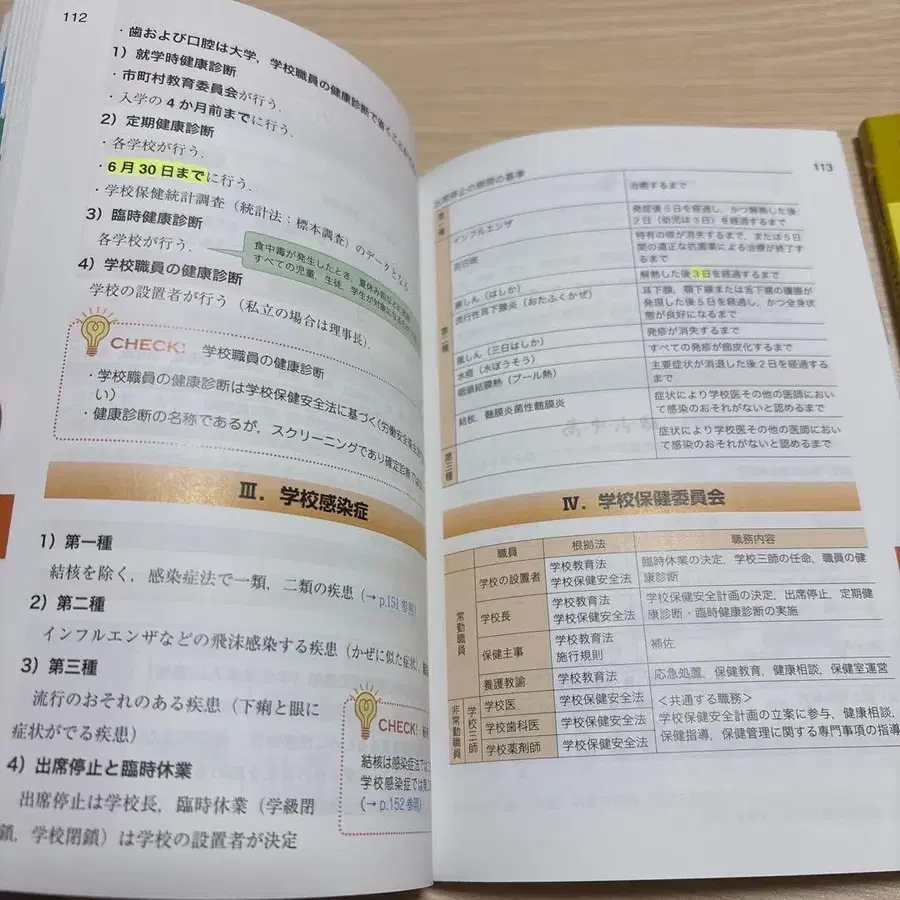 112
・歯および口腔は大学，学校職員の健康診断で省くことが
1）就学時健康診断
・市町村教育委員会が行う．
・入学の4か月前までに行う．
2）定期健康診断
・各学校が行う．
・6月30日までに行う．
・学校保健統計調査（統計法：標本調査）のデータとなる
3）臨時健康診断
各学校が行う．
食中毒が発生したとき，夏休み前など
すべての児童，生徒，学生が対象になる
4）学校職員の健康診断
学校の設置者が行う（私立の場合は理事長）．
CHECK! 学校職員の健康診断
・学校職員の健康診断は学校保健安全法に基づく（労働安全衛生法
い）
・健康診断の名称であるが，スクリーニングであり確定診断では
Ⅲ．学校感染症
1）第一種
結核を除く，感染症法で一類，二類の疾患（→p.151参照）
2）第二種
インフルエンザなどの飛沫感染する疾患（かぜに似た症状）
3）第三種
流行のおそれのある疾患（下痢と眼に
症状がでる疾患）
4）出席停止と臨時休業
出席停止は学校長，臨時休業（学級閉
鎖，学校閉鎖）は学校の設置者が決定
CHECK!
結核は感染症法では
学校感染症では第二
（→p.152参照）
113
出席停止の期間の基準
第一種 治癒するまで
第二種
インフルエンザ 発症後5日を経過し，かつ解熱した後
2日（幼児は3日）を経過するまで
百日咳 特有の咳が消失するまで，または5日
間の適正な抗菌薬による治療が終了す
るまで
麻しん（はしか） 解熱した後3日を経過するまで
流行性耳下腺炎（おたふくかぜ） 耳下腺，顎下腺または舌下腺の腫脹が
発現した後5日を経過し，かつ全身状
態が良好になるまで
風しん（三日ばしか） 発疹が消失するまで
水痘（水ぼうそう） すべての発疹が痂皮化するまで
咽頭結膜熱（プール熱） 主要症状が消退した後2日を経過する
まで
結核，髄膜炎菌性髄膜炎 症状により学校医その他の医師におい
て感染のおそれがないと認めるまで
第三種 症状により学校医その他の医師におい
て感染のおそれがないと認めるまで
Ⅳ．学校保健委員会
職員 根拠法 職務内容
常勤職員
学校の設置者 学校教育法 臨時休業の決定，学校三師の任命，職員の健
学校保健安全法 康診断
学校長 学校教育法 学校保健安全計画の決定，出席停止，定期健
学校保健安全法 康診断・臨時健康診断の実施
保健主事 学校教育法 補佐
施行規則
養護教諭 学校教育法 応急処置，保健教育，健康相談，保健室運営
非常勤職員 学校三師
学校医 学校保健安全法 ＜共通する職務＞
学校歯科医 学校保健安全法 学校保健安全計画の立案に参与，健康相談，
学校薬剤師 学校保健安全法 保健指導，保健管理に関する専門事項の指導